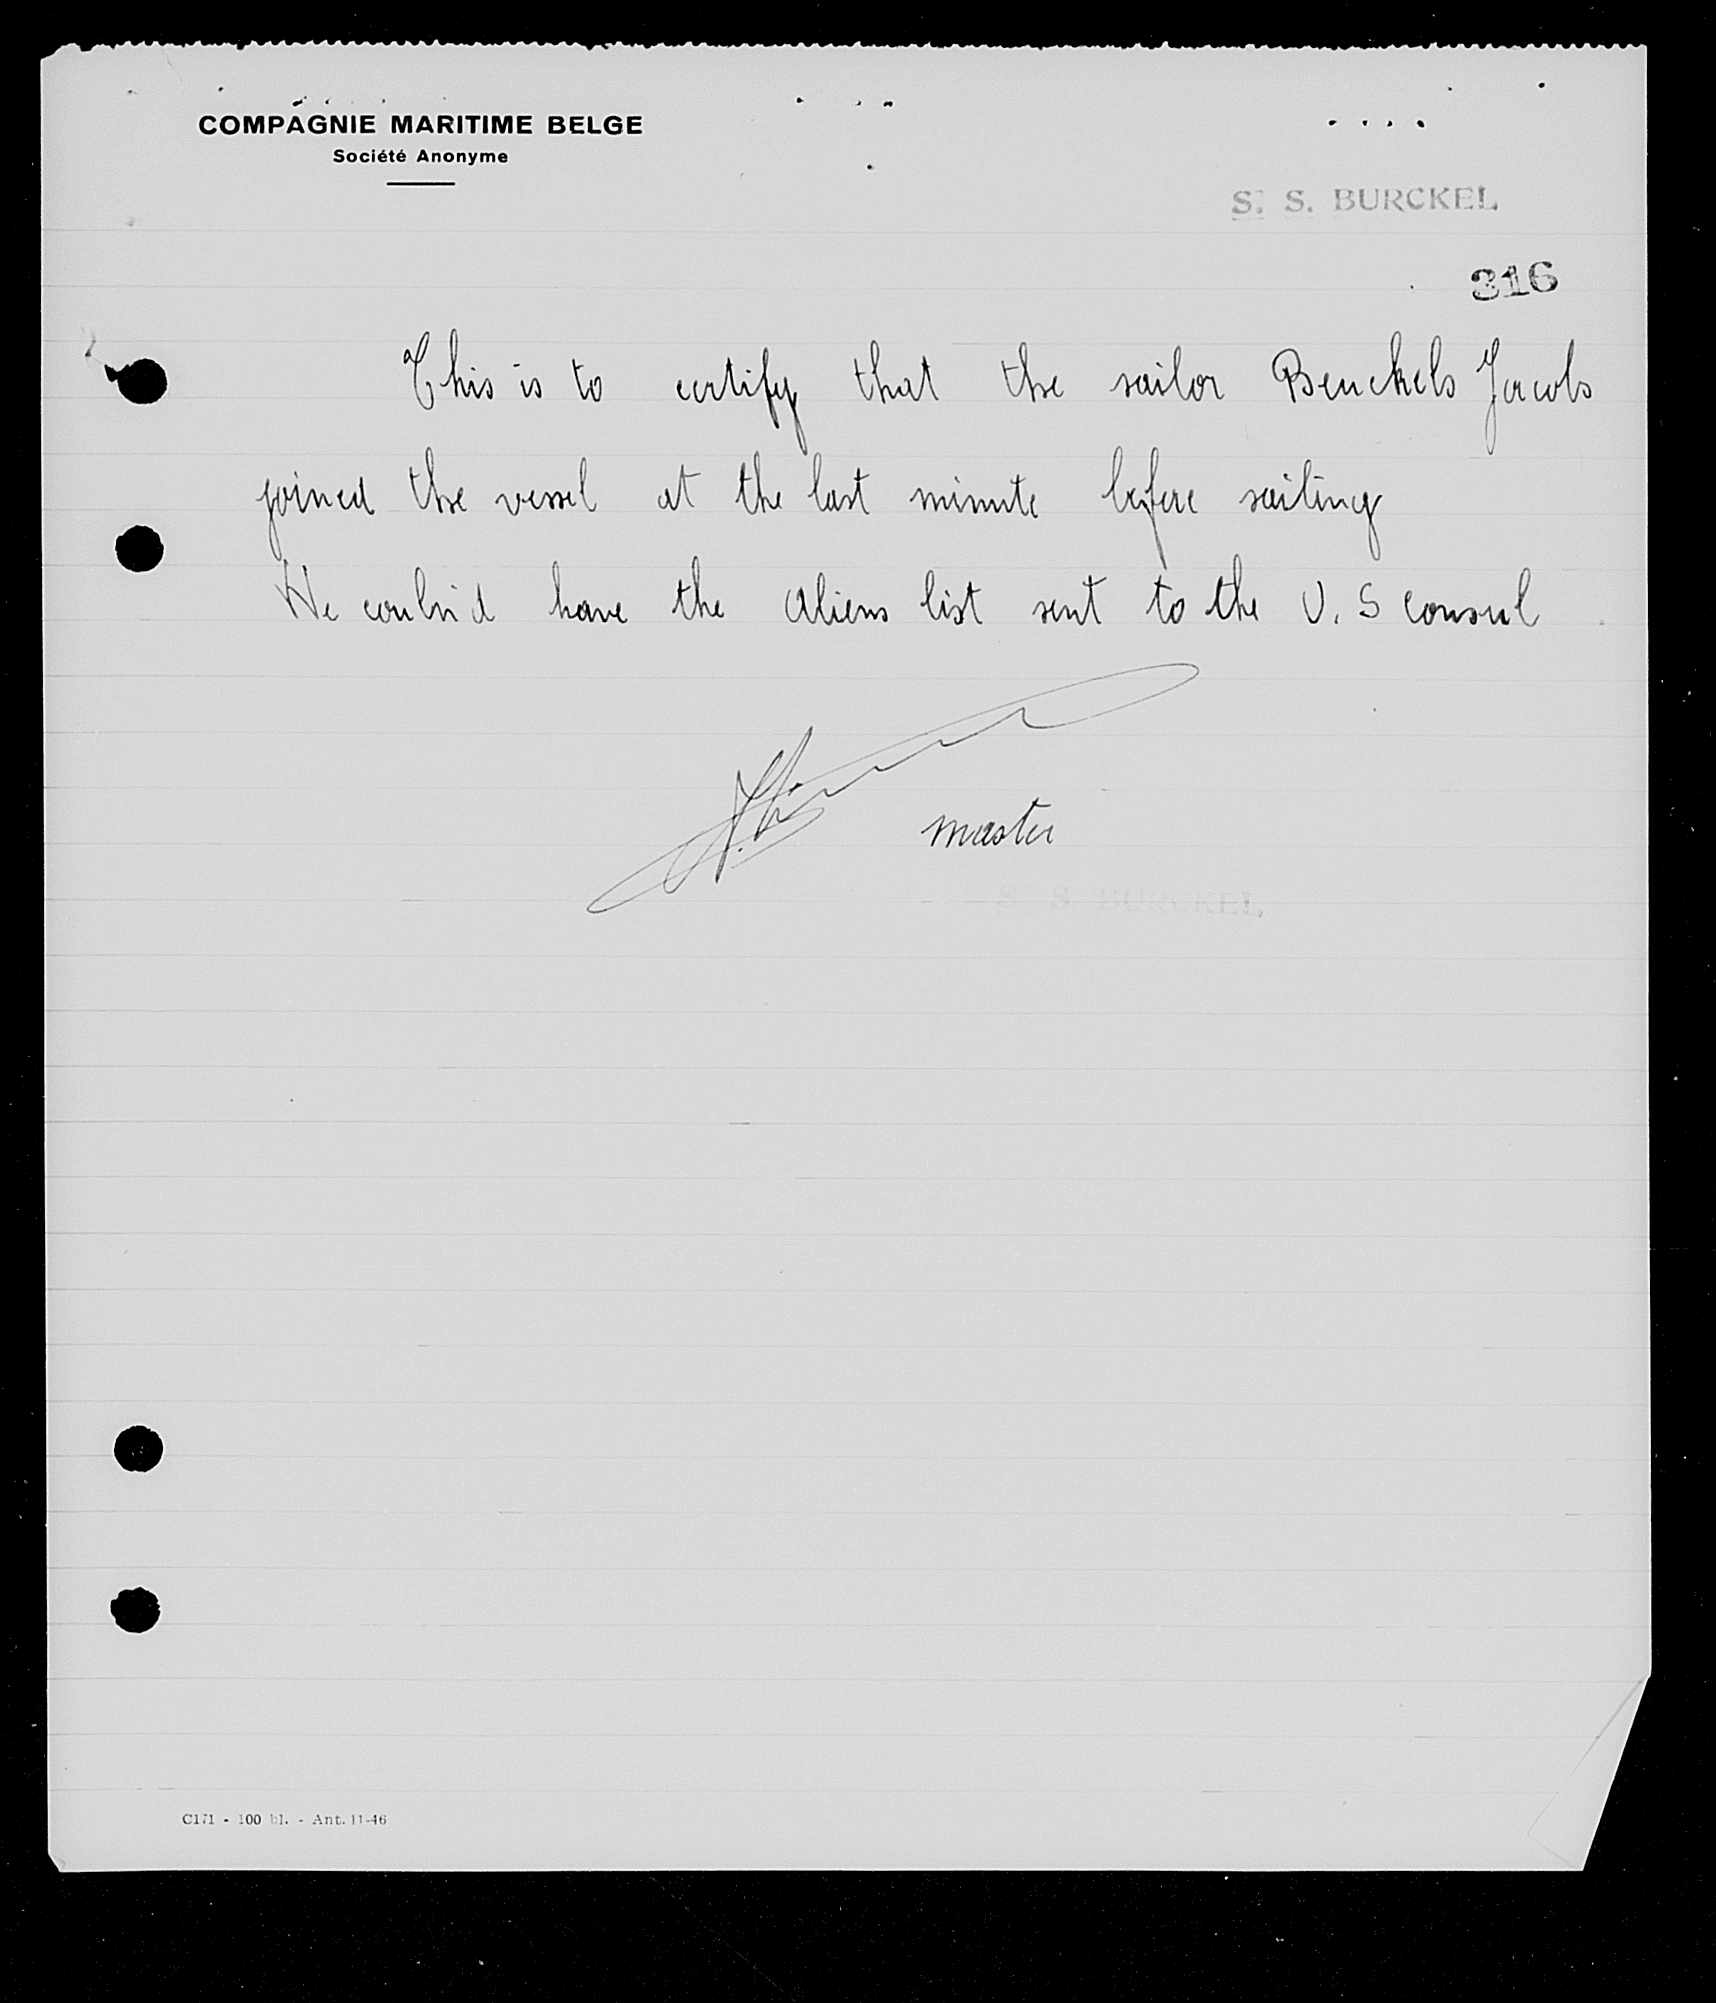 COMPAGNIE MARITIME BELGE
Société Anonyme
S. S. BURCKEL
316
This is to certify that the sailor Beuckels Jacob
joined the vessel at the last minute before sailing
He could'nt have the Aliens list sent to the U. S consul
master
S. S. BURCKEL
C171 - 100 bl. - Ant. 11-46